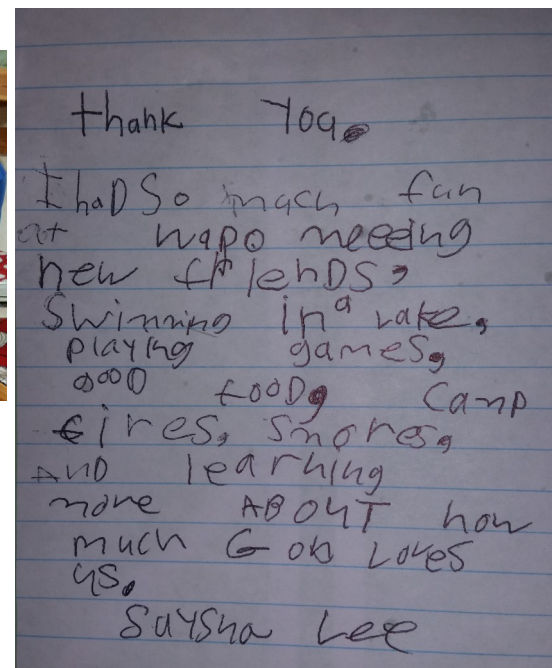 thank You.
I haD So much fun
at wapo meeting
new frienDS,
Swimming in a Lake,
playing games,
gooD fooD, Camp
fires, Smores,
AnD learning
more ABOUT how
much GoD Loves
us.
Saysha Lee